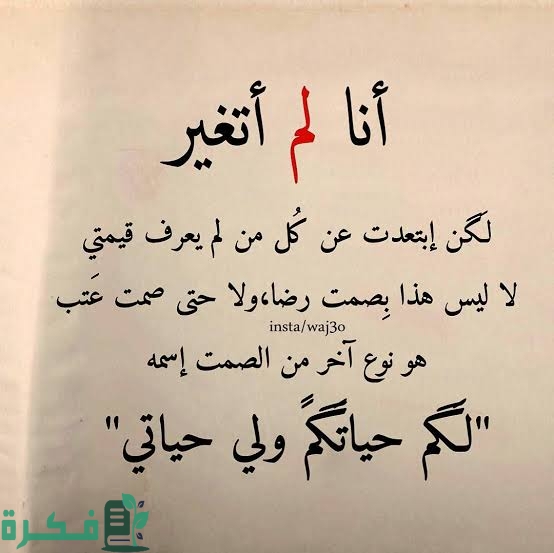 أنا لم أتغير
لَكن إبتعدت عن كُل من لم يعرف قيمتي
لا ليس هذا بِصمت رضا،ولا حتى صمت عَتب
insta/waj3o
هو نوع آخر من الصمت إسمه
"لَكَم حياتَكَمً ولي حياتي"
فكرة